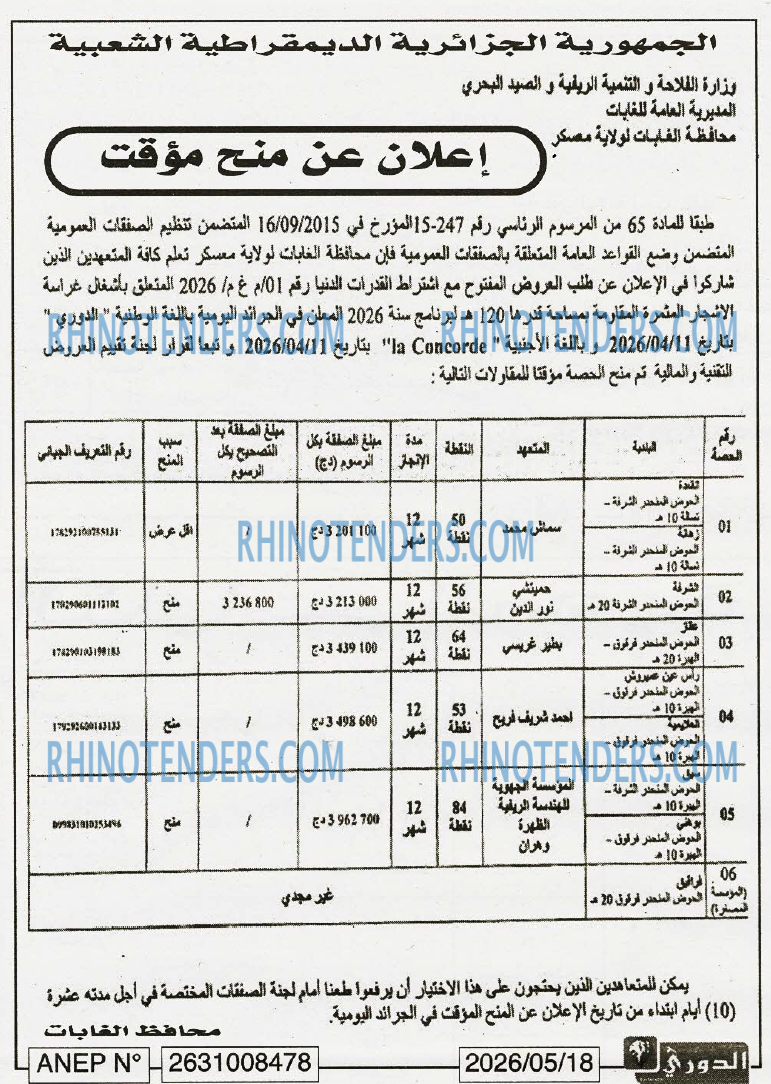 الجمهورية الجزائرية الديمقراطية الشعبية
وزارة الفلاحة و التنمية الريفية و الصيد البحري
المديرية العامة للغابات
محافظة الغابات لولاية معسكر
إعلان عن منح مؤقت
طبقا للمادة 65 من المرسوم الرئاسي رقم 247-15المؤرخ في 16/09/2015 المتضمن تنظيم الصفقات العمومية
المتضمن وضع القواعد العامة المتعلقة بالصفقات العمومية فإن محافظة الغابات لولاية معسكر تعلم كافة المتعهدين الذين
شاركوا في الإعلان عن طلب العروض المفتوح مع اشتراط القدرات الدنيا رقم 01/م غ م/ 2026 المتعلق بأشغال غراسة
الاشجار المثمرة المقاومة بمساحة قدرها 120 هـ لبرنامج سنة 2026 المعلن في الجرائد اليومية باللغة الوطنية " الدوري "
بتاريخ 2026/04/11 و باللغة الأجنبية " la Concorde" بتاريخ 2026/04/11 و تبعا لقرار لجنة تقييم العروض
التقنية والمالية تم منح الحصة مؤقتا للمقاولات التالية :
RHINOTENDERS.COM RHINOTENDERS.COM
رقم الحصة | البلدية | المتعهد | النقطة | مدة الإنجاز | مبلغ الصفقة بكل الرسوم (دج) | مبلغ الصفقة بعد التصحيح بكل الرسوم | سبب المنح | رقم التعريف الجبائي
01 | الحوض المنحدر الشرفة – تسالة 10 هـ الحوض المنحدر الشرفة – تسالة 10 هـ | سماش محمد | 50 نقطة | 12 شهر | 3 201 100 دج | / | اقل عرض
RHINOTENDERS.COM
02 | الشرفة الحوض المنحدر الشرفة 20 هـ | نور الدين | 56 نقطة | 12 شهر | 3 213 000 دج | 3 236 800 | منح
03 | الحوض المنحدر فرقوق – الهبرة 20 هـ | بطير غريسي | 64 نقطة | 12 شهر | 3 439 100 دج | / | منح
04 | رأس عين عميروش الحوض المنحدر فرقوق – الهبرة 10 هـ العلايمية الحوض المنحدر فرقوق – الهبرة 10 هـ | احمد شريف فريح | 53 نقطة | 12 شهر | 3 498 600 دج | / | منح
RHINOTENDERS.COM RHINOTENDERS.COM
05 | الحوض المنحدر الشرفة – الهبرة 10 هـ بوهني الحوض المنحدر فرقوق – الهبرة 10 هـ | المؤسسة الجهوية للهندسة الريفية الظهرة وهران | 84 نقطة | 12 شهر | 3 962 700 دج | / | منح
06 (المؤسسة المصغرة) | فراقيق الحوض المنحدر فرقوق 20 هـ | غير مجدي
يمكن للمتعاهدين الذين يحتجون على هذا الاختيار أن يرفعوا طعنا أمام لجنة الصفقات المختصة في أجل مدته عشرة
(10) أيام ابتداء من تاريخ الإعلان عن المنح المؤقت في الجرائد اليومية.
محافظ الغابات
ANEP N° 2631008478 2026/05/18 الدوري